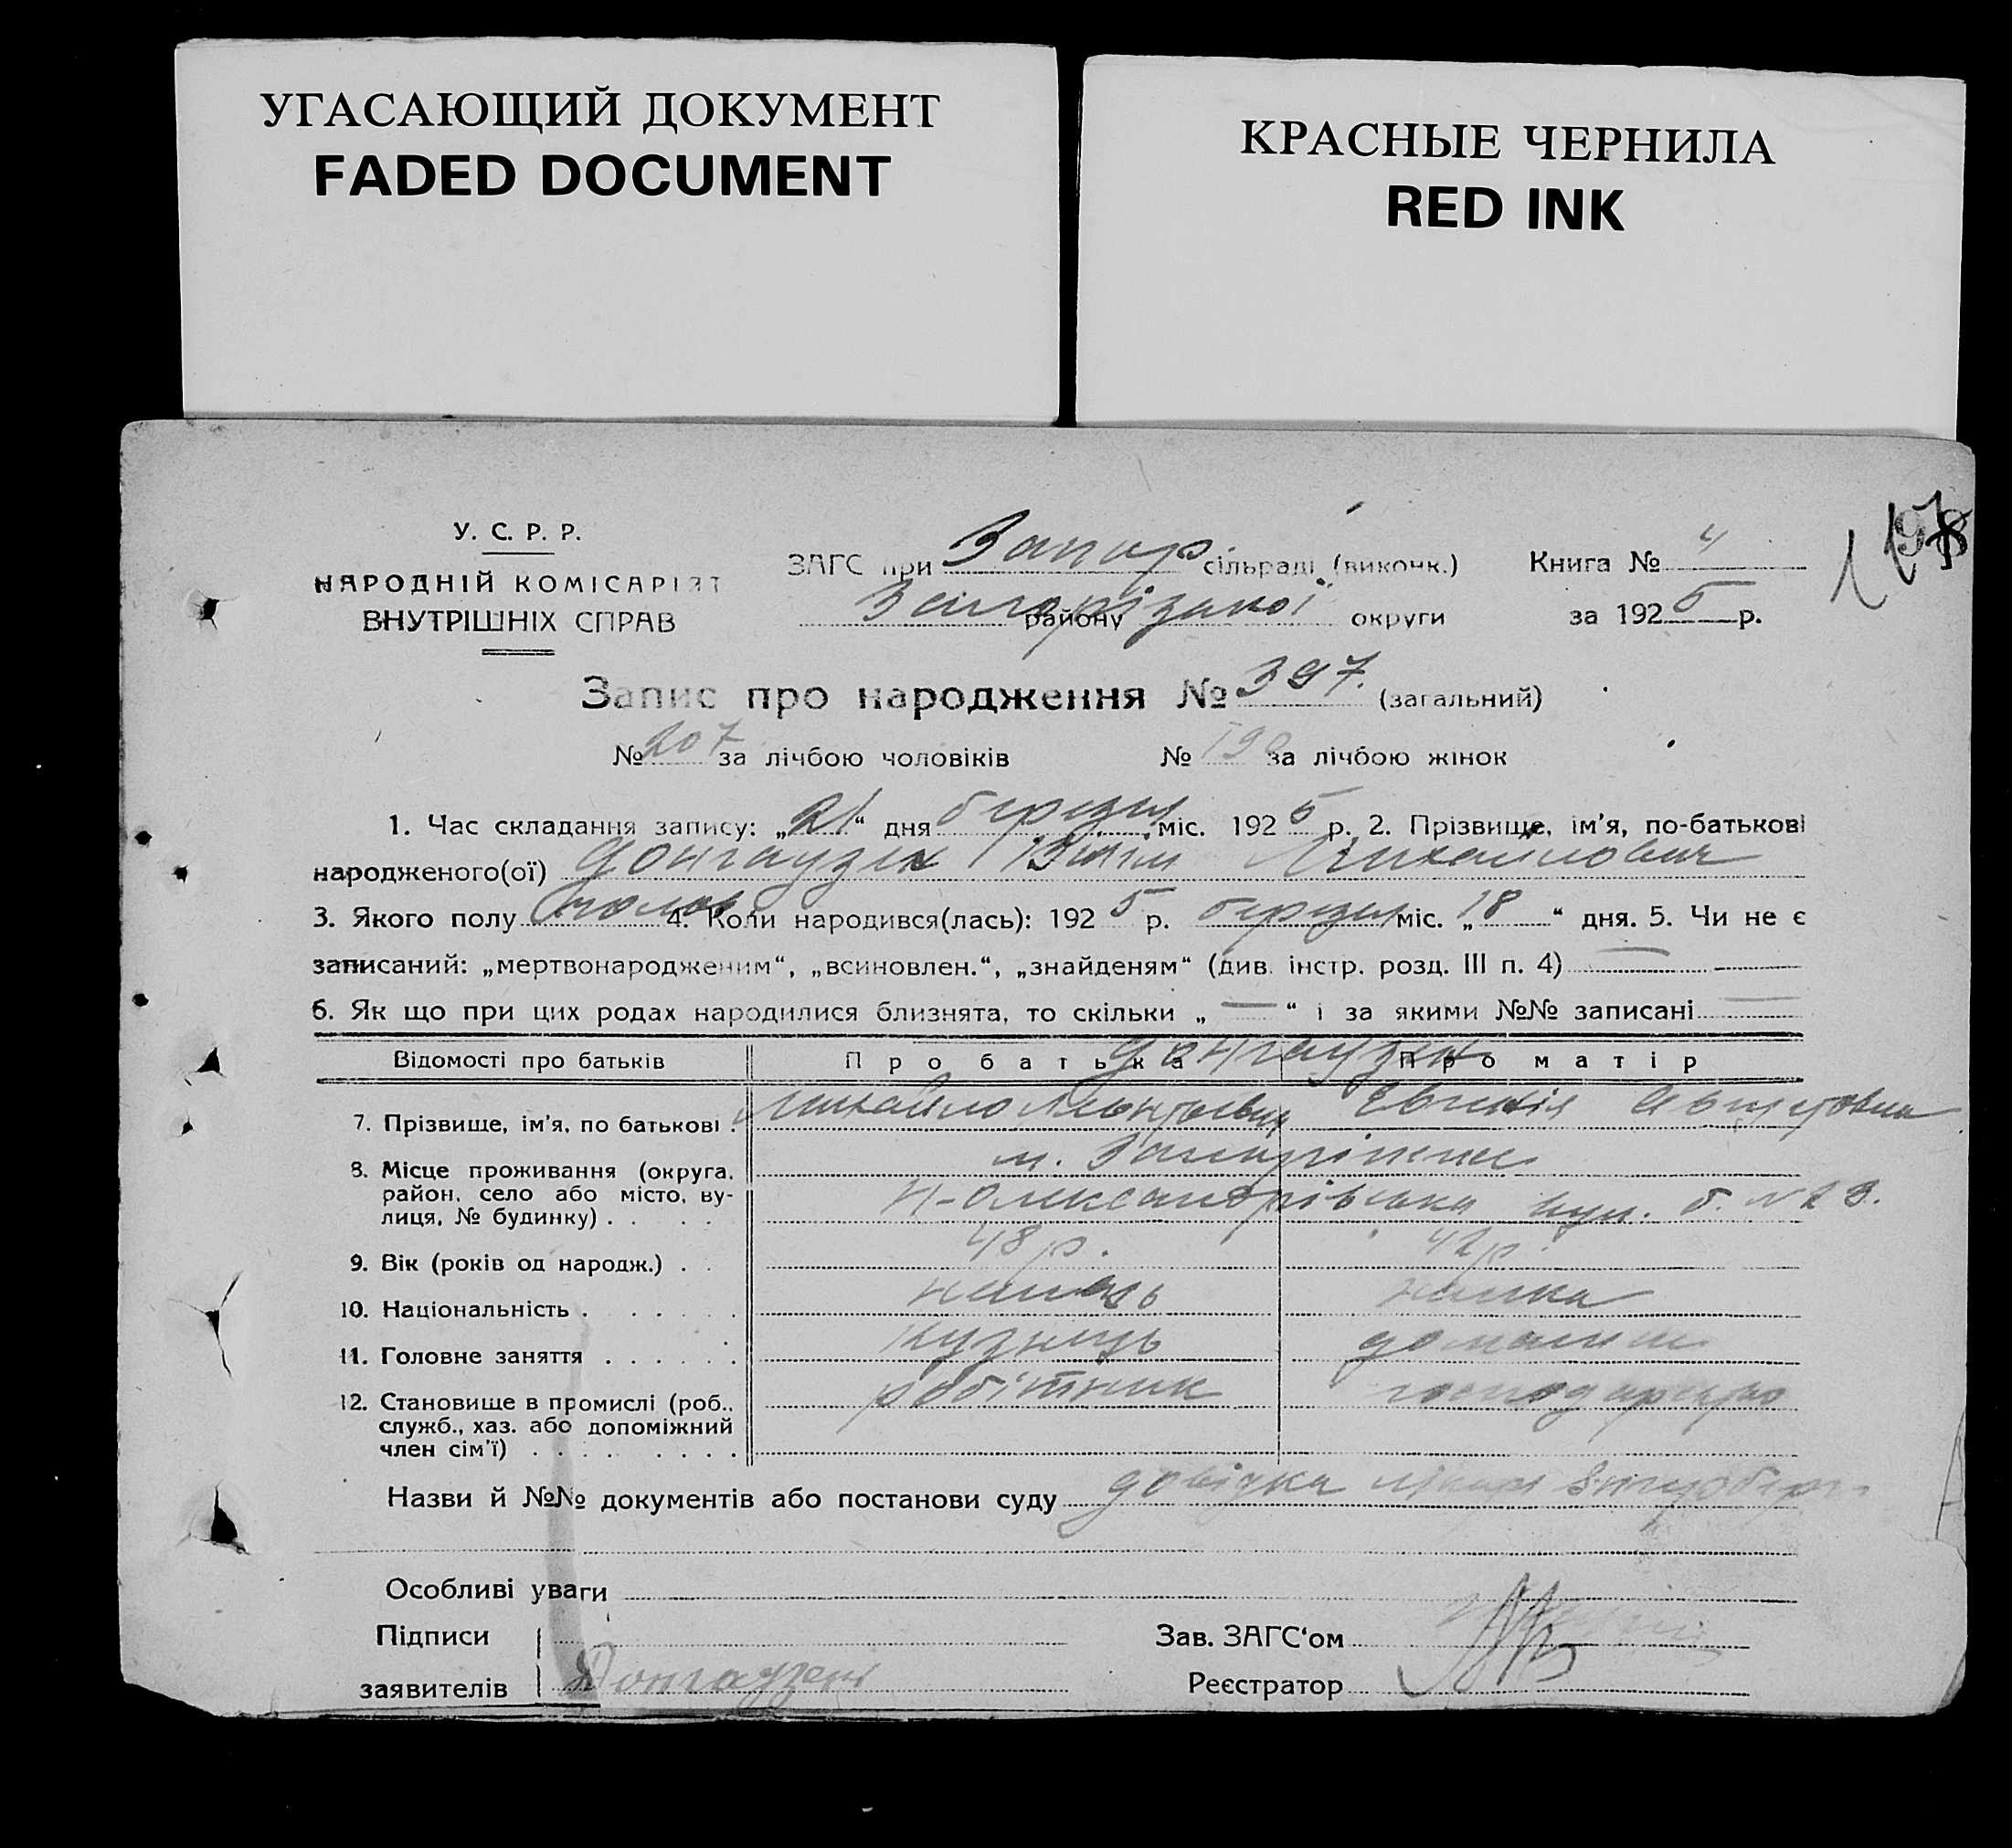 УГАСАЮЩИЙ ДОКУМЕНТ
FADED DOCUMENT
КРАСНЫЕ ЧЕРНИЛА
RED INK
У. С. Р. Р.
НАРОДНІЙ КОМІСАРІЯТ
ВНУТРІШНІХ СПРАВ
ЗАГС при Запор. сільраді (виконк.)
району Запорізької округи
Книга № 4
за 1925 р.
Запис про народження № 397. (загальний)
№ 207 за лічбою чоловіків № 190 за лічбою жінок
1. Час складання запису: „21“ дня березня міс. 1925 р. 2. Прізвище, ім'я, по-батькові
народженого(ої) Донгаузен Михайлович
3. Якого полу чолов 4. Коли народився(лась): 1925 р. березня міс. „18“ дня. 5. Чи не є
записаний: „мертвонародженим“, „всиновлен.“, „знайденям“ (див. інстр. розд. III п. 4) —
6. Як що при цих родах народилися близнята, то скільки „ — “ і за якими №№ записані —
Відомості про батьків Про батька Про матір
Донгаузен
7. Прізвище, ім'я, по батькові . Михайло Євгенія Августовна
8. Місце проживання (округа, район, село або місто, вулиця, № будинку) . . . . м. Запоріжжя
Н-Олександрівська вул. б. № 23.
9. Вік (років од народж.) . . 48 р. 42 р.
10. Національність . . . . . . німець німка
11. Головне заняття . . . . . . кузнець домашн
12. Становище в промислі (роб., служб., хаз. або допоміжний член сім'ї) . . . . . . . . робітник господарка
Назви й №№ документів або постанови суду довідка лікаря
Особливі уваги
Підписи
заявителів Донгаузен
Зав. ЗАГС'ом
Реєстратор